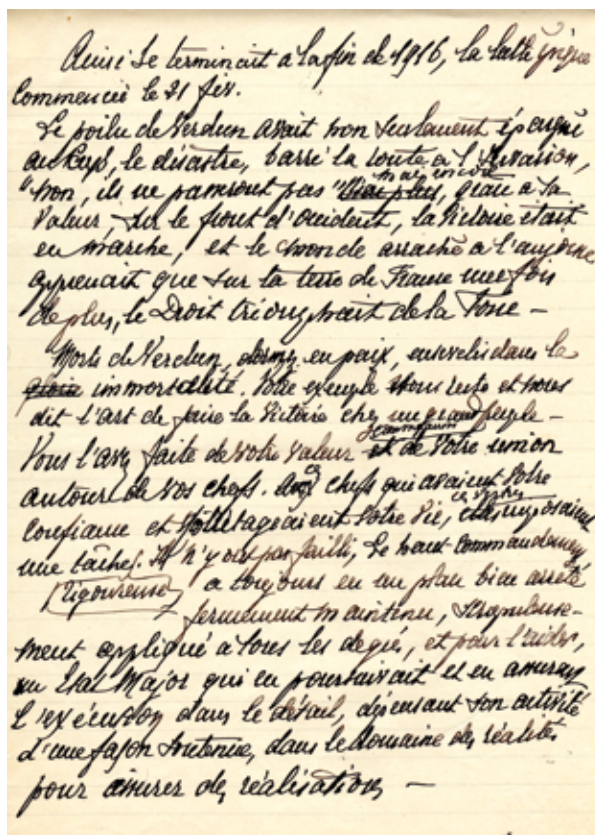 Ainsi se terminait à la fin de 1916, la lutte
Commencée le 21 fév.
Le poilu de Verdun avait non seulement épargné
au Pays, le désastre, barré la route à l'Invasion,
"non, ils ne passeront pas" mais encore grâce à sa
Valeur sur le front d'occident, la Victoire était
en marche, et le monde arraché à l'angoisse
apprenait que sur la terre de France une fois
de plus, le Droit triomphait de la Force —
Morts de Verdun, dormez en paix, ensevelis dans la
gloire immortalité. Votre exemple nous reste et nous
dit l'art de faire la Victoire chez un grand Peuple —
Vous l'avez faite de votre Valeur et de Votre union
autour de vos chefs. chefs qui avaient Votre
Confiance et partageaient Votre Vie,
une tâche. Il n'y ont pas failli, Le haut Commandement
rigoureuse a toujours eu un plan bien arrêté
fermement maintenu, scrupuleuse-
ment appliqué à tous les degrés, et pour l'aider,
un Etat Major qui en poursuivait et en assurait
L'exécution dans le détail, dépensant son activité
d'une façon soutenue, dans le domaine des réalités
pour assurer des réalisations —